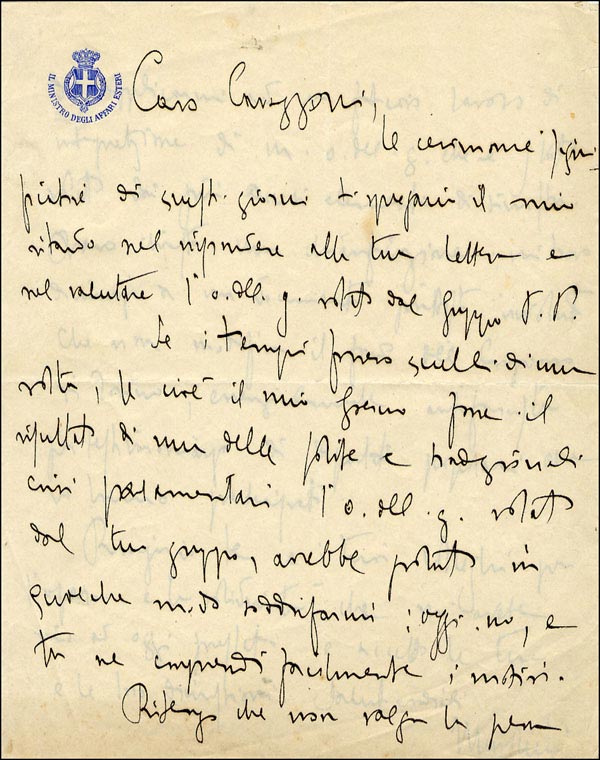 IL MINISTRO DEGLI AFFARI ESTERI
Caro Cavazzoni,
le cerimonie
di questi giorni ti spiegano il mio
ritardo nel rispondere alla tua lettera e
nel valutare l'o. dell. g. votato dal Gruppo P. P.
Se i tempi fossero quelli di una
volta, se cioè il mio Governo fosse il
risultato di una delle solite e tradizionali
crisi parlamentari l'o. dell. g. votato
dal tuo gruppo, avrebbe potuto in
qualche modo soddisfarmi; oggi no, e
tu ne comprendi facilmente i motivi.
Ritengo che non valga la pena